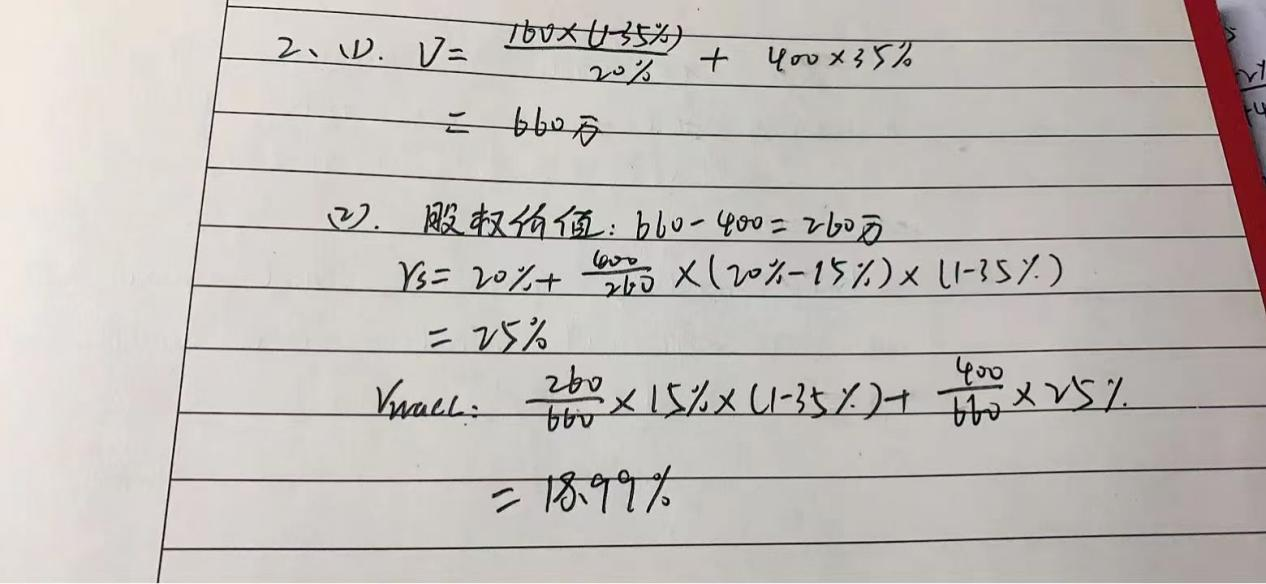 2、(1). V= 160×(1-35%)/20% + 400×35%
= 660万
(2). 股权价值: 660-400=260万
rs= 20%+ 400/260 ×(20%-15%)×(1-35%)
= 25%
rwacc: 260/660 ×15%×(1-35%)+ 400/660 ×25%.
= 18.99%